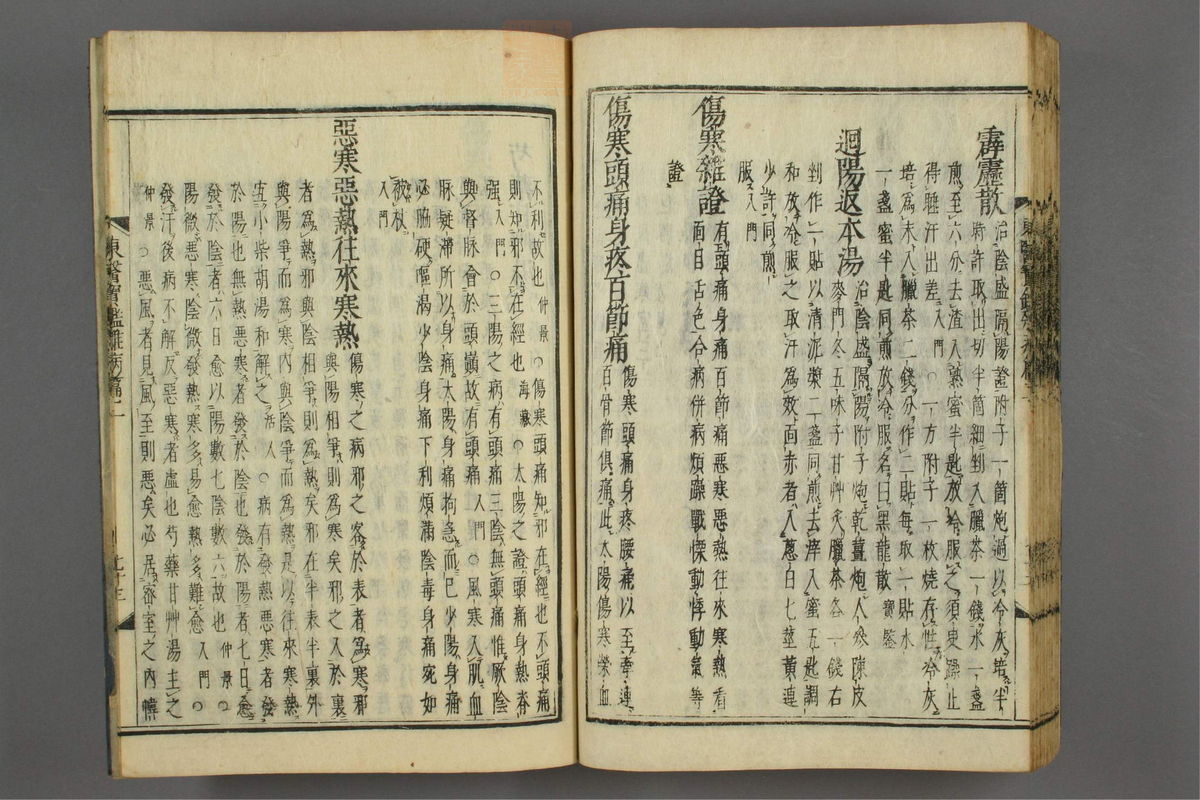 霹靂散 治陰盛隔陽證附子一箇炮過以冷灰培半
時許取出切半箇細剉入臘茶一錢水一盞
煎至六分去渣入熟蜜半匙放冷服之須臾躁止
得睡汗出差 入門 ○一方附子一枚燒存性冷灰
培爲末入臘茶二錢分作二貼每取一貼水
一盞蜜半匙同煎放冷服名曰黑龍散 寶鑑
迴陽返本湯 治陰盛隔陽附子炮乾薑炮人參陳皮
麥門冬五味子甘艸炙臘茶各一錢右
剉作一貼以清泥漿二盞同煎去滓入蜜五匙調
和放冷服之取汗爲效面赤者入葱白七莖黃連
少許同煎
服 入門
傷寒雜證 有頭痛身疼百節痛惡寒惡熱往來寒熱看
面目舌色合病併病煩躁戰慄動悸動氣等
證
傷寒頭痛身疼百節痛 傷寒頭痛身疼腰痛以至牽連
百骨節俱痛此太陽傷寒榮血
不利故也 仲景 ○傷寒頭痛知邪在經也不頭痛
則知邪不在經也 海藏 ○太陽之證頭痛身熱脊
强 入門 ○三陽之病有頭痛三陰無頭痛惟厥陰
與督脉會於頭巓故有頭痛 入門 ○風寒入肌血
脉凝滯所以身痛太陽身痛拘急而已少陽身痛
必脇硬嘔渴少陰身痛下利煩滿陰毒身痛宛如
被杖
入門
惡寒惡熱往來寒熱 傷寒之病邪之客於表者爲寒邪
與陽相爭則爲寒矣邪之入於裏
者爲熱邪與陰相爭則爲熱矣邪在半表半裏外
與陽爭而爲寒內與陰爭而爲熱是以往來寒熱
宜小柴胡湯和解之 活人 ○病有發熱惡寒者發
於陽也無熱惡寒者發於陰也發於陽者七日愈
發於陰者六日愈以陽數七陰數六故也 仲景 ○
陽微惡寒陰微發熱寒多易愈熱多難愈 入門 ○
發汗後病不解反惡寒者虛也芍藥甘艸湯主之
仲景 ○惡風者見風至則惡矣必居密室之內幃
東醫寶鑑雜病篇二